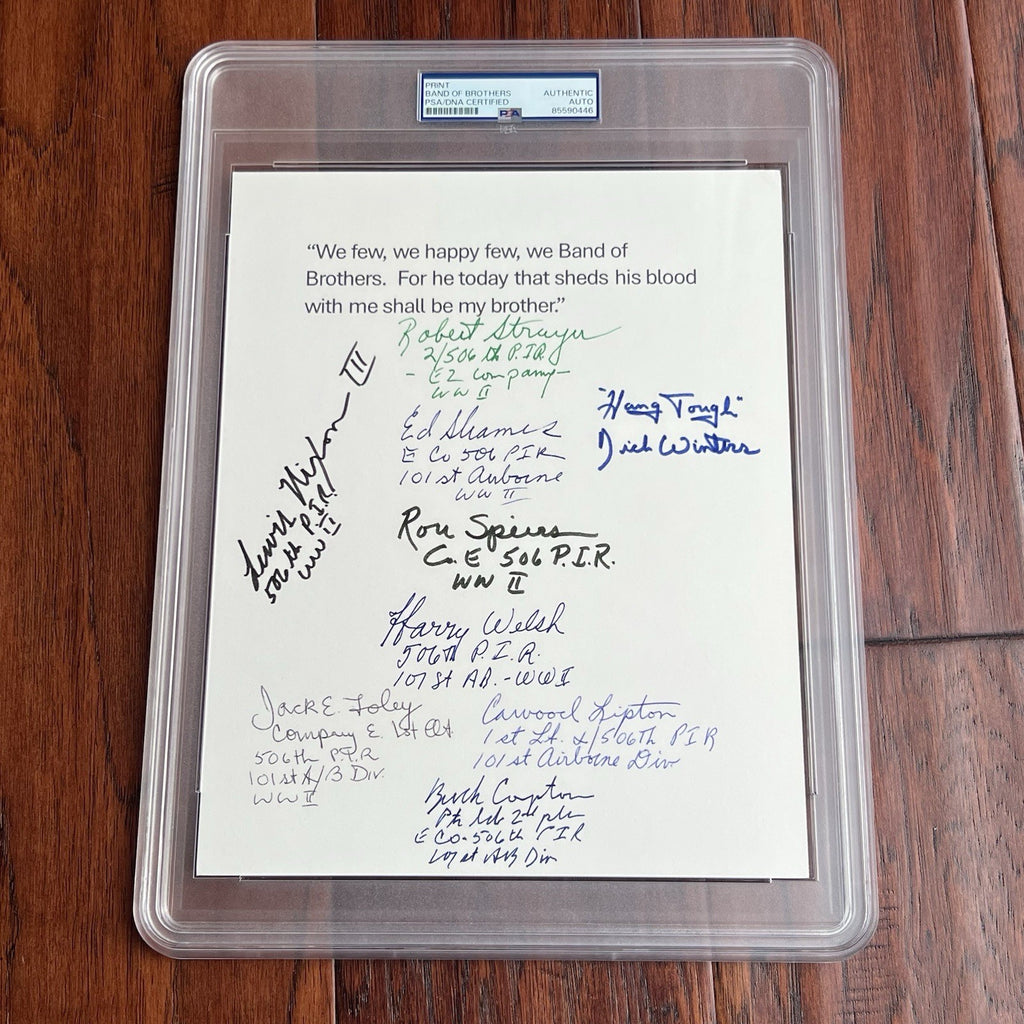 PRINT
BAND OF BROTHERS
PSA/DNA CERTIFIED
AUTHENTIC
AUTO
85590446
PSA
“We few, we happy few, we Band of
Brothers.  For he today that sheds his blood
with me shall be my brother.”
Robert Strayer
2/506 th P.I.R.
- E2 Company -
WW II
"Hang Tough"
Dick Winters
Lewis Nixon III
506 th P.I.R.
WW II
Ed Shames
E Co 506 PIR
101st Airborne
WW II
Ron Speirs
Co. E 506 P.I.R.
WW II
Harry Welsh
506th P.I.R.
101st AB. - WW II
Jack E. Foley
Company E. 1st Plt
506th P.I.R
101st A/B Div.
WW II
Carwood Lipton
1st Lt. 2/506th PIR
101st Airborne Div
Buck Compton
2nd
E Co. 506th PIR
101st AB Div